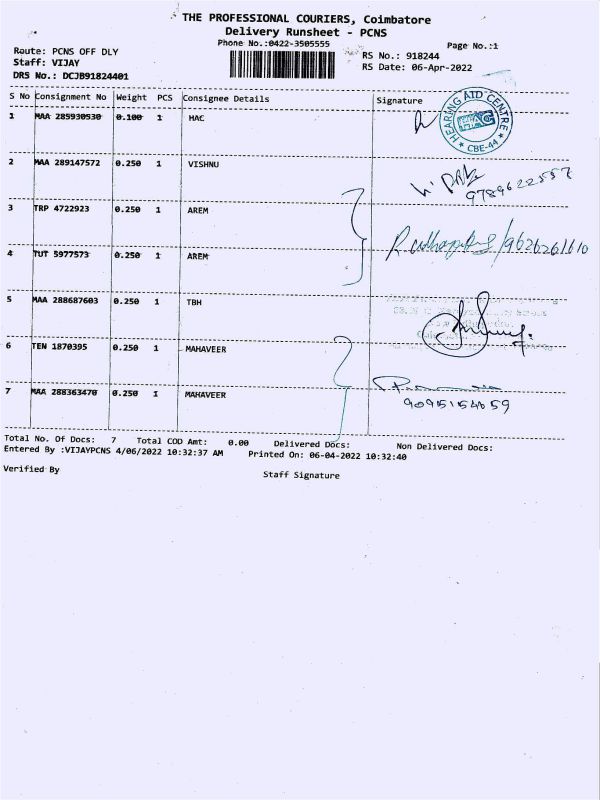 THE PROFESSIONAL COURIERS, Coimbatore
Delivery Runsheet - PCNS
Phone No.:0422-3505555
Page No.:1
Route: PCNS OFF DLY
Staff: VIJAY
DRS No.: DCJB91824401
RS No.: 918244
RS Date: 06-Apr-2022
S No Consignment No Weight PCS Consignee Details Signature
1 MAA 285930530 0.100 1 HAC
HEARING AID CENTRE
HAC
CBE-44
2 MAA 289147572 0.250 1 VISHNU
9789622557
3 TRP 4722923 0.250 1 AREM
4 TUT 5977573 0.250 1 AREM
/9626261610
5 MAA 288687603 0.250 1 TBH
6 TEN 1870395 0.250 1 MAHAVEER
7 MAA 288363470 0.250 1 MAHAVEER
9095154659
Total No. Of Docs: 7 Total COD Amt: 0.00 Delivered Docs: Non Delivered Docs:
Entered By :VIJAYPCNS 4/06/2022 10:32:37 AM Printed On: 06-04-2022 10:32:40
Verified By Staff Signature